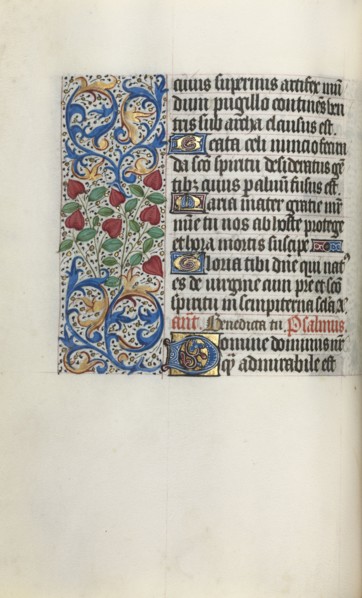 cuius supernus artifex mũ
dum pugillo continẽs ven
tris sub archa clausus est.
Beata celi nuncio fecun
da sc̃o spiritu desideratus gẽ
tibz cuius p aluum fusus est.
Maria mater gratie mr̃
mie tu nos ab hoste protege
et hora mortis suscipe
Gloria tibi dñe qui nat9
es de virgine cum pr̃e et sc̃o
spiritu in sempiterna scl̃a. A
ant. Benedicta tu. Psalmus.
Domine dominus nr̃
q̃ admirabile est